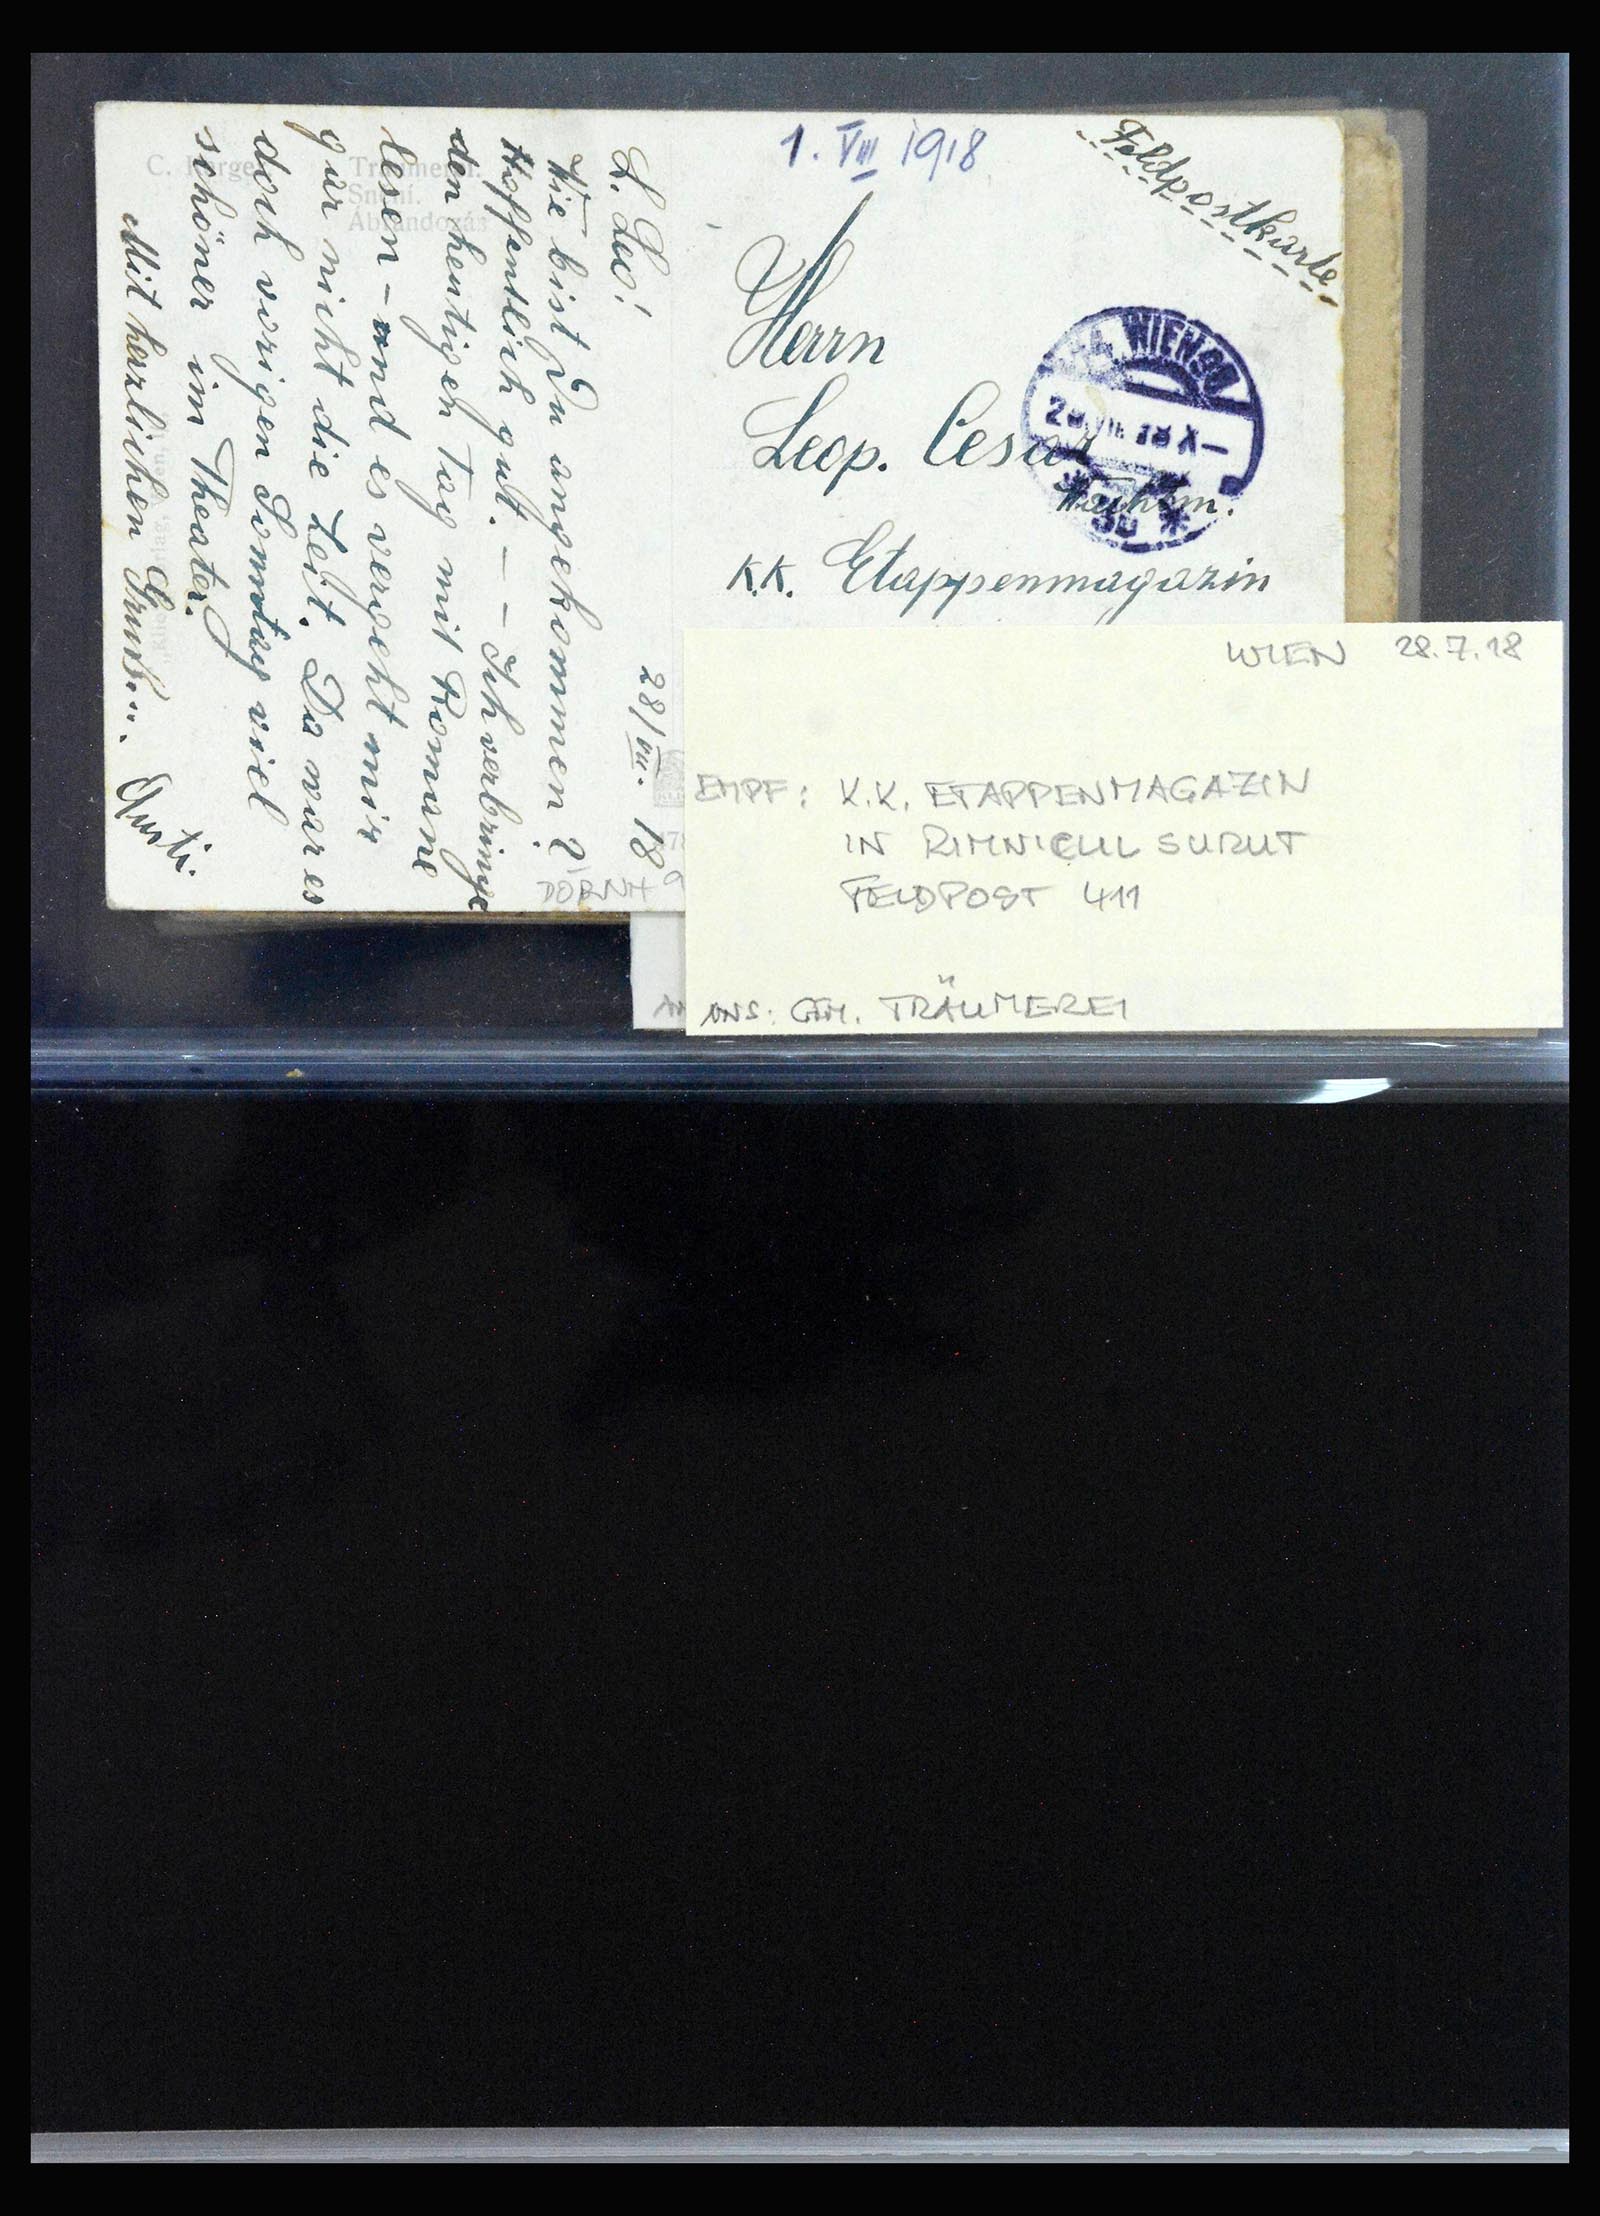 1. VIII 1918
Feldpostkarte
Herrn
Leop. Cesar
Wachtm.
K.K. Etappenmagazin
WIEN 90
28/VII. 18
L. Leo!
Wie bist Du angekommen?
Hoffentlich gut. — — Ich verbringe
den heutigen Tag mit Romane
lesen — und es vergeht mir
gar nicht die Zeit. Da war es
doch vorigen Sonntag viel
schöner im Theater.
Mit herzlichen Grüßen
Gusti
C.
Träumerei.
Snění.
Ábrándozás
DÖRNH 9
WIEN 28.7.18
EMPF: K.K. ETAPPENMAGAZIN
IN RIMNICUL SURUT
FELDPOST 411
ANS: TRÄUMEREI